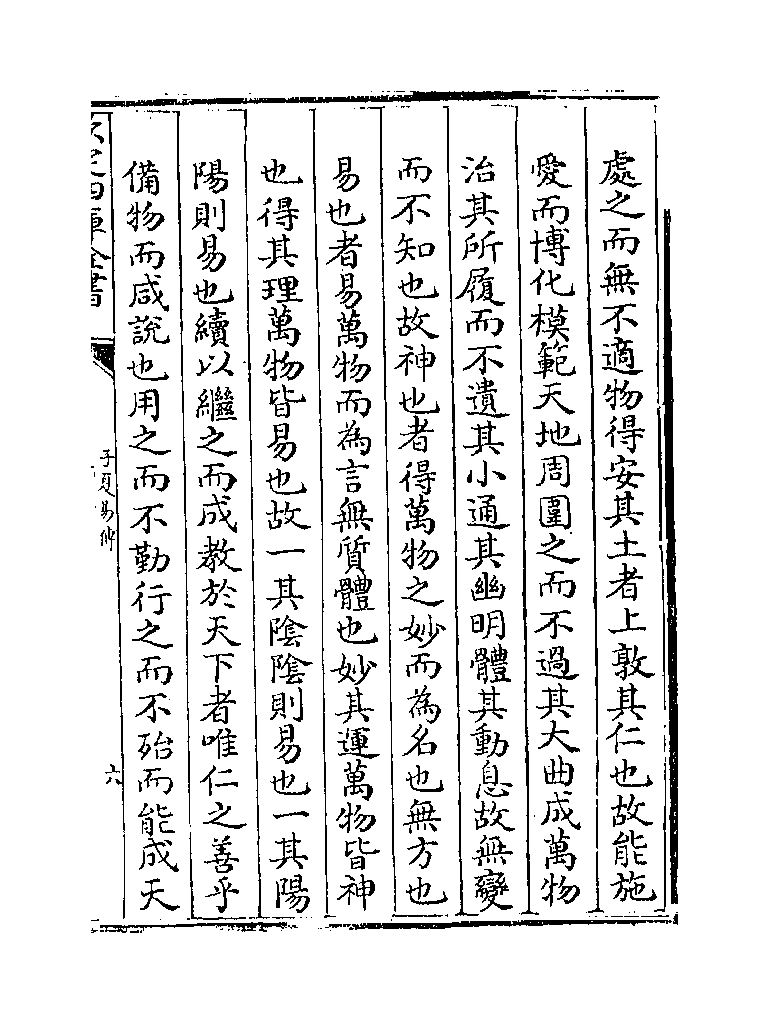 處之而無不適物得安其土者上敦其仁也故能施
愛而博化模範天地周圍之而不過其大曲成萬物
治其所履而不遺其小通其幽明體其動息故無變
而不知也故神也者得萬物之妙而為名也無方也
易也者易萬物而為言無質體也妙其運萬物皆神
也得其理萬物皆易也故一其陰陰則易也一其陽
陽則易也續以繼之而成教於天下者唯仁之善乎
備物而咸說也用之而不勤行之而不殆而能成天
欽定四庫全書
子夏易傳
六